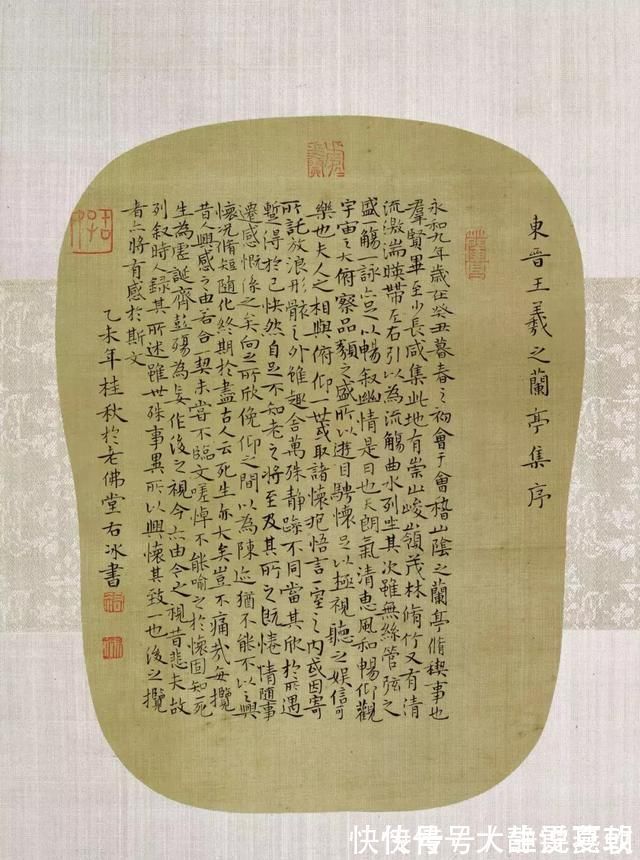 東晉王羲之蘭亭集序
永和九年歲在癸丑暮春之初會于會稽山陰之蘭亭脩稧事也
羣賢畢至少長咸集此地有崇山峻嶺茂林脩竹又有清
流激湍暎帶左右引以為流觴曲水列坐其次雖無絲管弦之
盛一觴一詠亦足以暢叙幽情是日也天朗氣清惠風和暢仰觀
宇宙之大俯察品類之盛所以遊目騁懷足以極視聽之娛信可
樂也夫人之相與俯仰一世或取諸懷抱悟言一室之内或因寄
所託放浪形骸之外雖趣舍萬殊静躁不同當其欣於所遇
蹔得於己怏然自足不知老之將至及其所之既惓情随事
遷感慨係之矣向之所欣俛仰之間以為陳迹猶不能不以之興
懷況脩短随化終期於盡古人云死生亦大矣豈不痛哉每攬
昔人興感之由若合一契未嘗不臨文嗟悼不能喻之於懷固知一死
生為虛誕齊彭殤為妄作後之視今亦由今之視昔悲夫故
列叙時人錄其所述雖世殊事異所以興懷其致一也後之攬
者亦將有感於斯文
乙未年桂秋於老佛堂右冰書